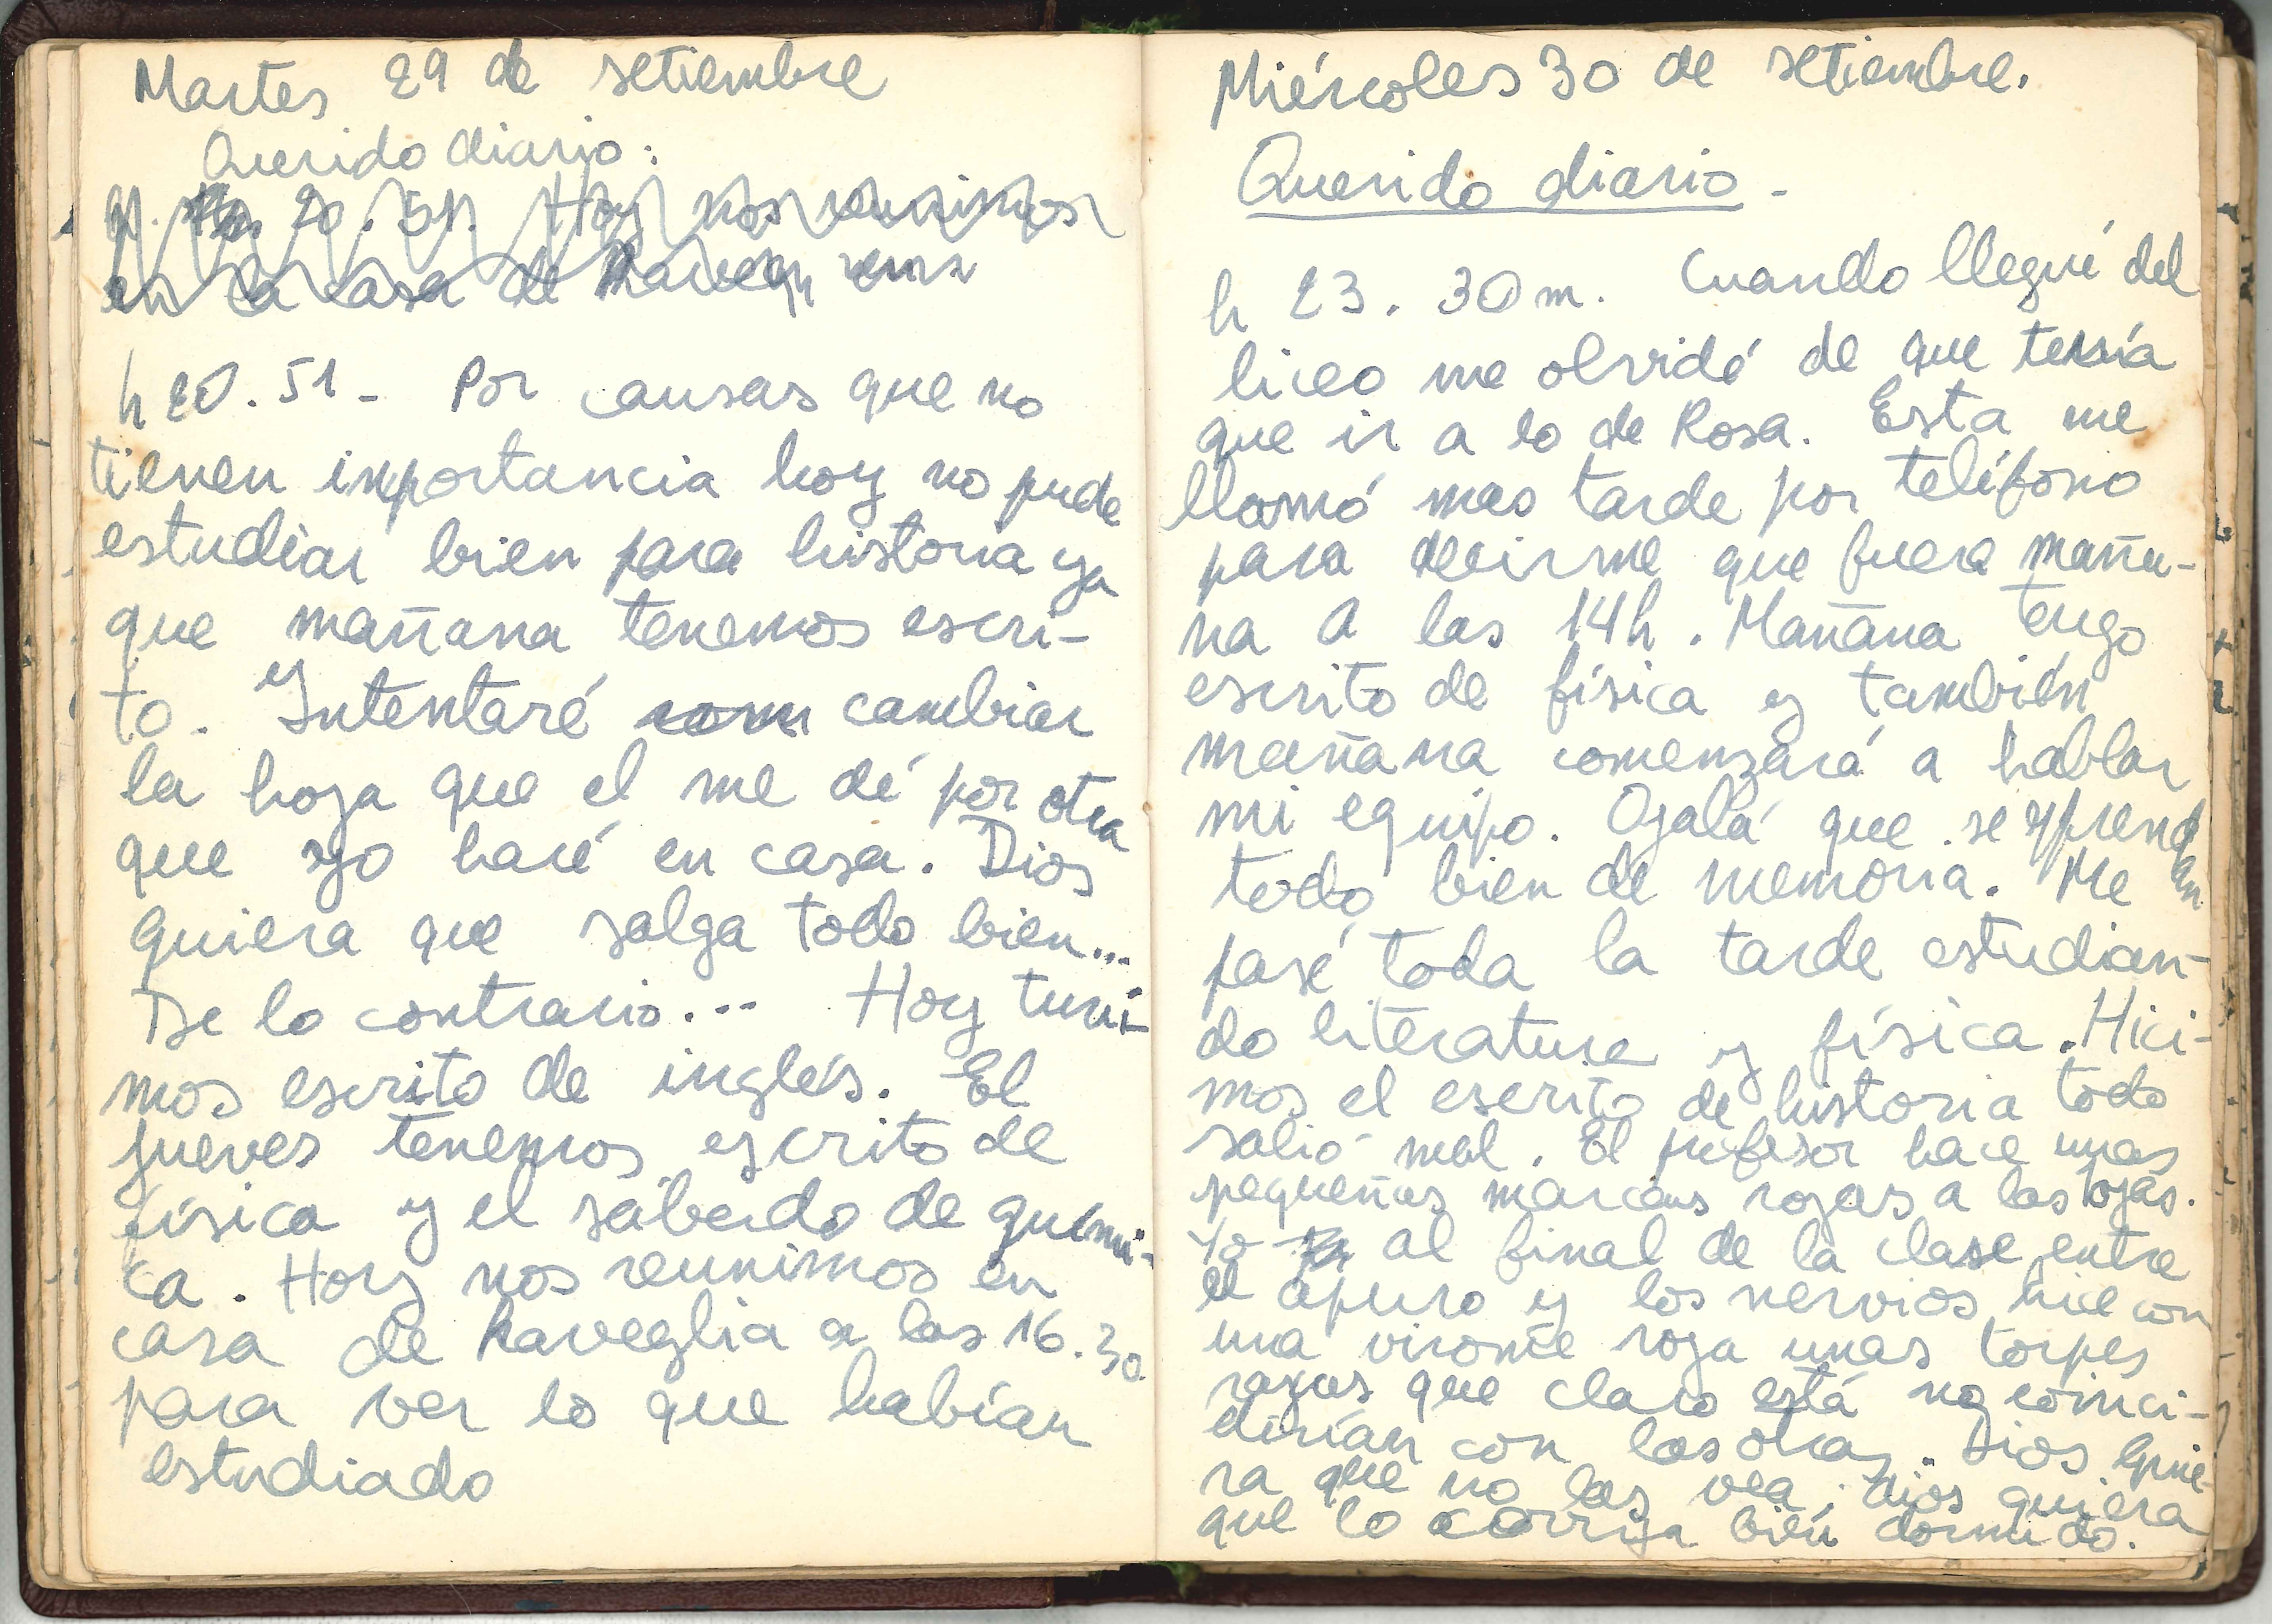 Martes 29 de setiembre
Querido diario:
20.51. Hoy nos reunimos
en la casa de
h 20.51- Por causas que no
tienen importancia hoy no pude
estudiar bien para historia ya
que mañana tenemos escri-
to. y Intentaré cambiar
la hoja que el me dé por otra
que yo haré en casa. Dios
quiera que salga todo bien...
De lo contrario... Hoy tuvi-
mos escrito de inglés. El
jueves tenemos escrito de
física y el sábado de quími-
ca. Hoy nos reunimos en
casa de Raveglia a las 16.30
para ver lo que habían
estudiado
Miércoles 30 de setiembre.
Querido diario-
h 23.30m. Cuando llegué del
liceo me olvidé de que tenía
que ir a lo de Rosa. Esta me
llamó mas tarde por teléfono
para decirme que fuera maña-
na a las 14h. Mañana tengo
escrito de física y también
mañana comenzará a hablar
mi equipo. Ojalá que se aprendan
todo bien de memoria. Me
pasé toda la tarde estudian-
do literatura y física. Hici-
mos el escrito de historia todo
salió mal. El profesor hace unas
pequeñas marcas rojas a las ojas.
Yo al final de la clase entre
el apuro y los nervios hice con
una virome roja unas torpes
rayas que claro está no coinci-
dirían con las otras. Dios quie-
ra que no las vea, dios quiera
que lo corrija bien dormido.